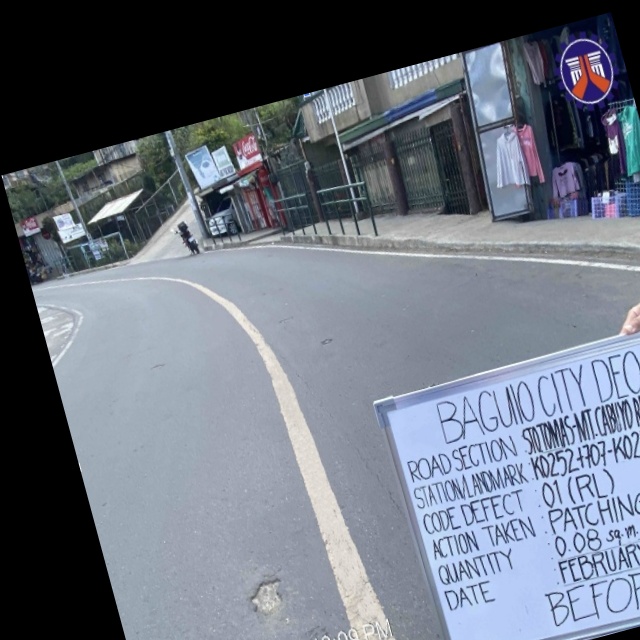 Coca-Cola
BAGUIO CITY DEO
ROAD SECTION
STATION LANDMARK K0252+107-K02
CODE DEFECT 01 (RL)
ACTION TAKEN PATCHING
QUANTITY 0.08 sq.m
DATE FEBRUAR
BEFOR
:09 PM